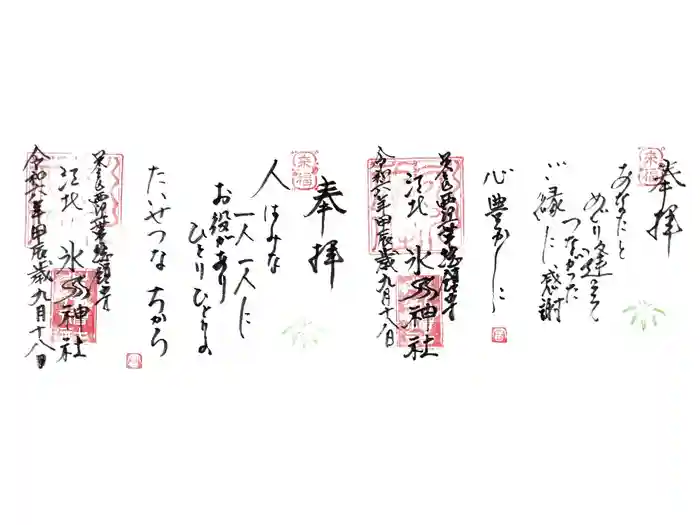 奉拝
あなたと
めぐり逢えて
つながった
ご縁に感謝
心豊かに
江北 氷川神社
令和六年甲辰歳九月十八日
来福
奉拝
人はみな
一人一人に
お役があり
ひとりひとりの
たいせつなちから
江北 氷川神社
令和六年甲辰歳九月十八日
来福